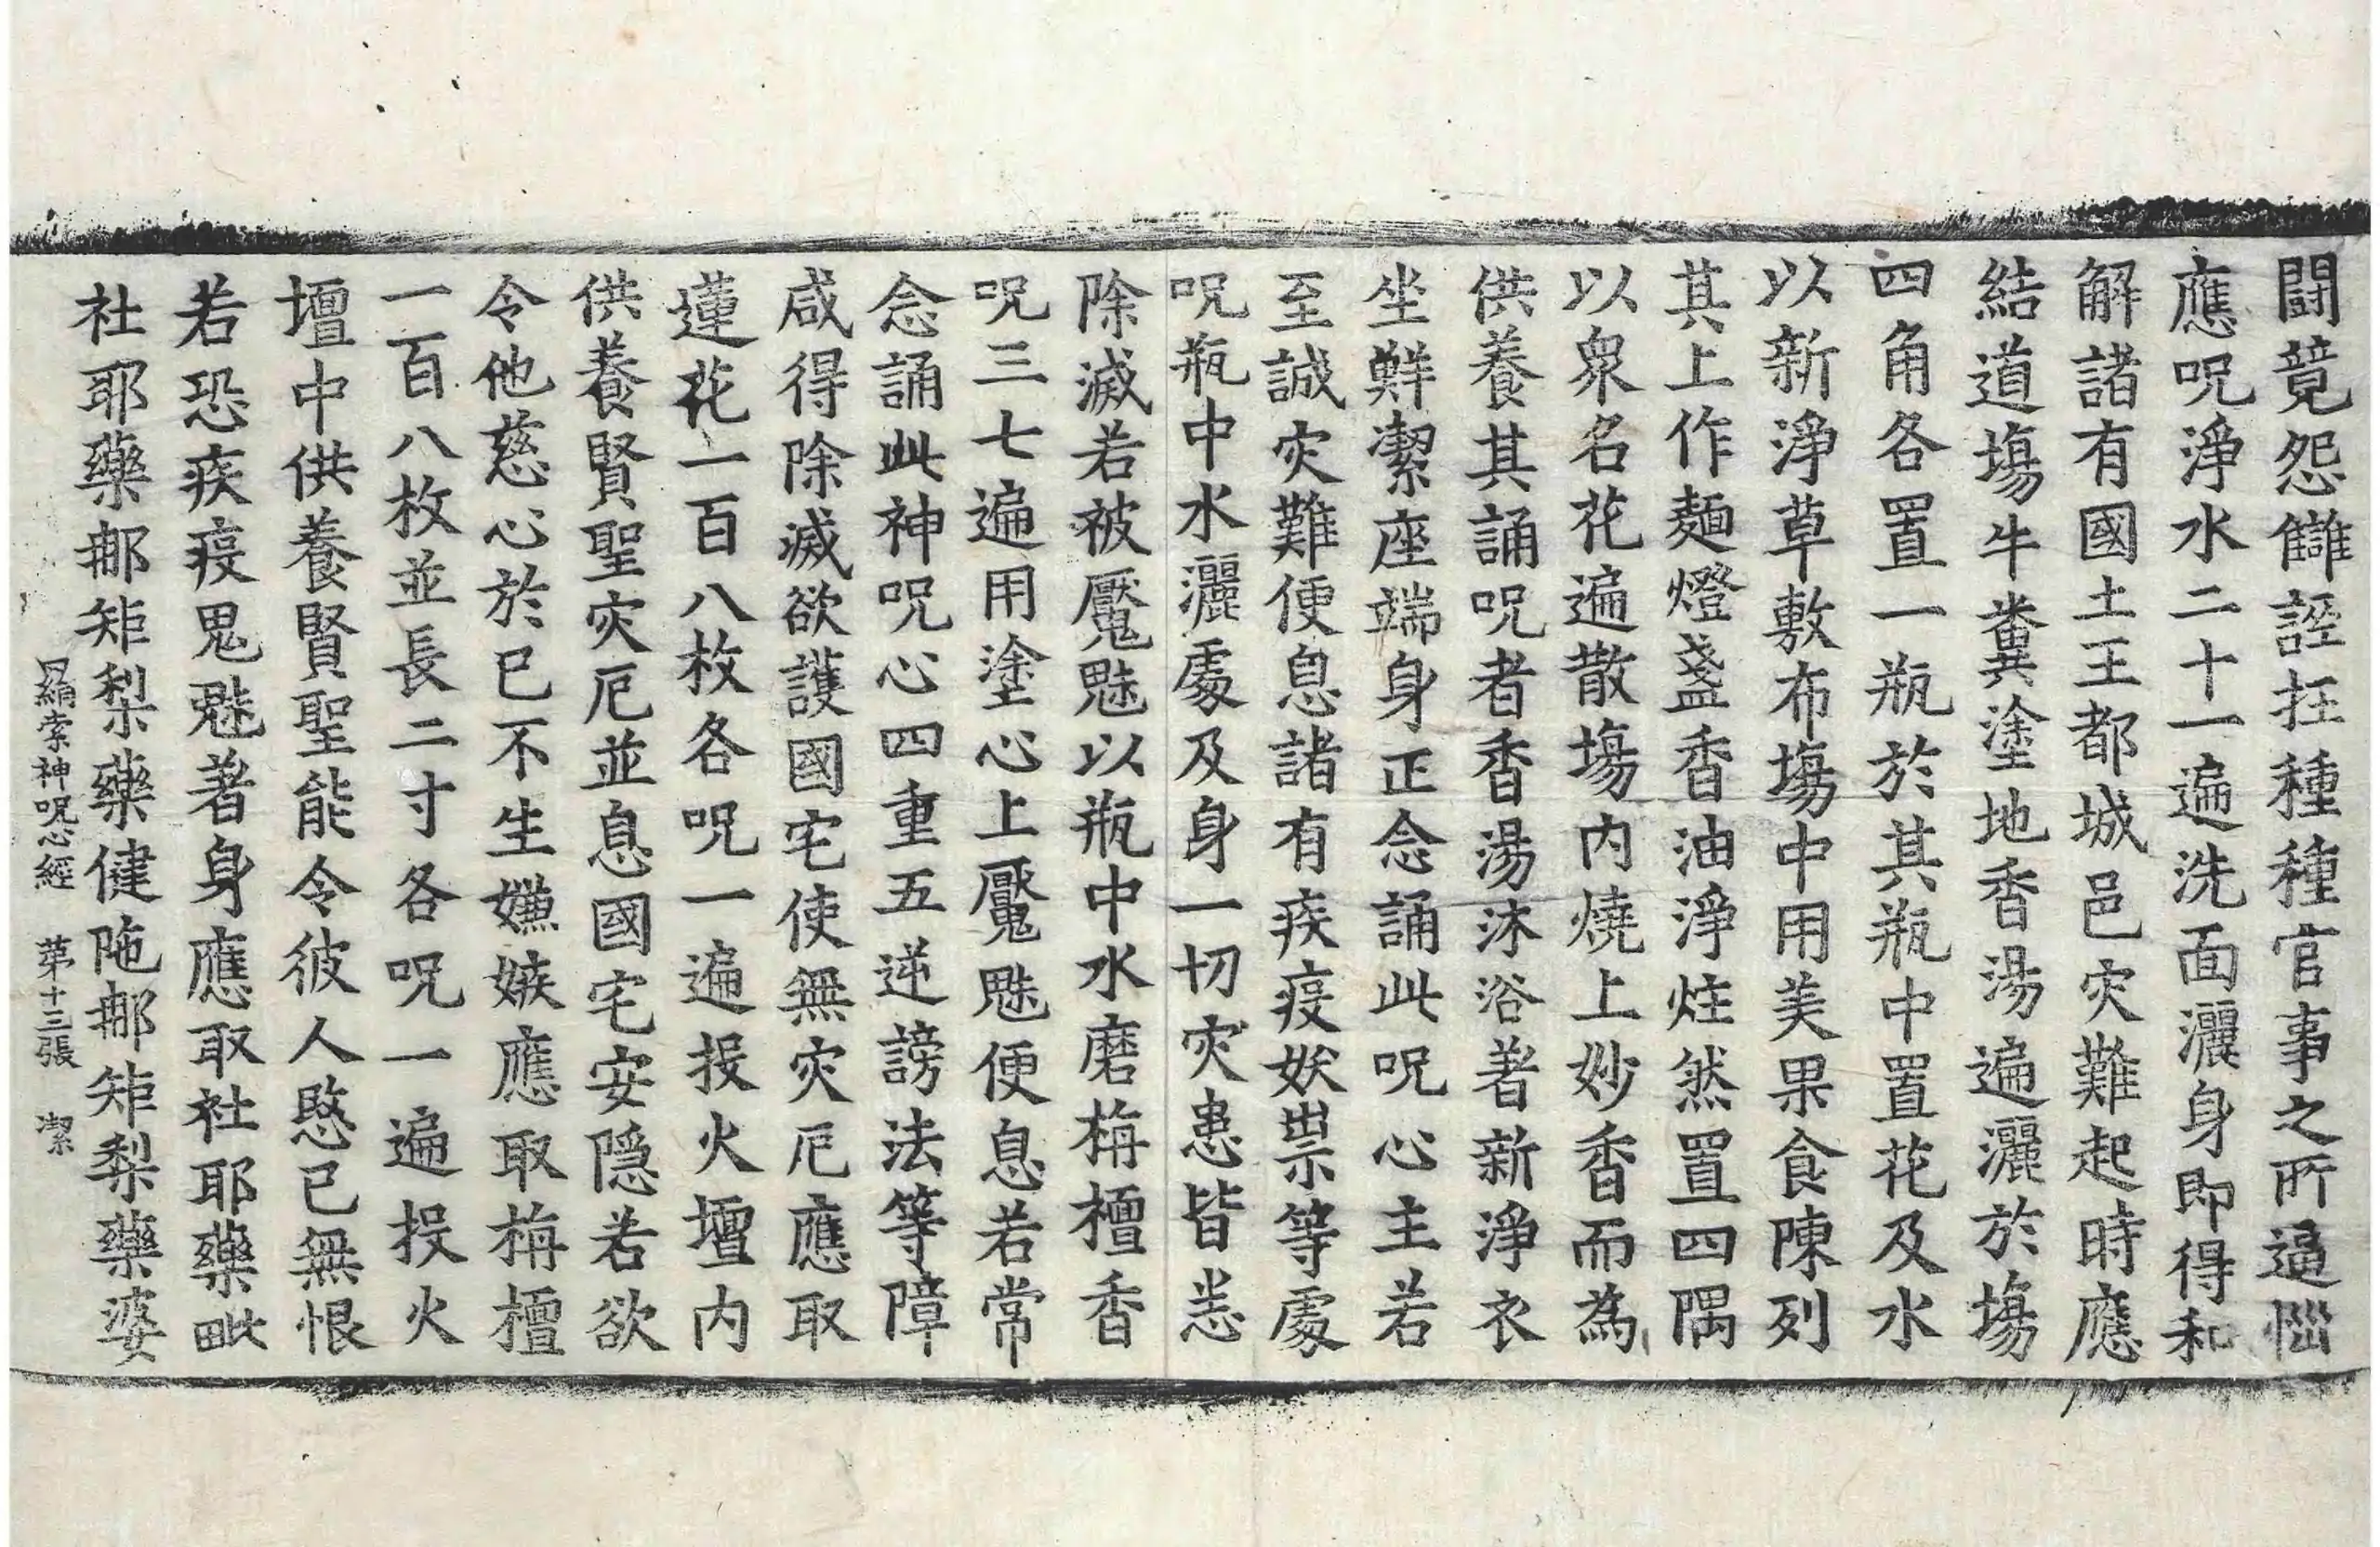 闘竟怨讎誣抂種種官事之所逼惱
應呪淨水二十一遍洗面灑身即得和
解諸有國土王都城邑灾難起時應
結道場牛糞塗地香湯遍灑於場
四角各置一瓶於其瓶中置花及水
以新淨草敷布場中用美果食陳列
其上作麵燈盞香油淨炷然置四隅
以衆名花遍散場内燒上妙香而為
供養其誦呪者香湯沐浴著新淨衣
坐鮮潔座端身正念誦此呪心主若
至誠灾難便息諸有疾疫妖祟等處
呪瓶中水灑處及身一切灾患皆悉
除滅若被魘魅以瓶中水磨栴檀香
呪三七遍用塗心上魘魅便息若常
念誦此神呪心四重五逆謗法等障
咸得除滅欲護國宅使無灾厄應取
蓮花一百八枚各呪一遍投火壇内
供養賢聖灾厄並息國宅安隱若欲
令他慈心於已不生嫌嫉應取栴檀
一百八枚並長二寸各呪一遍投火
壇中供養賢聖能令彼人愍已無恨
若恐疾疫鬼魅著身應取社耶藥毗
社耶藥那矩梨藥健陁那矩梨藥婆
羂索神呪心經 苐十三張 潔